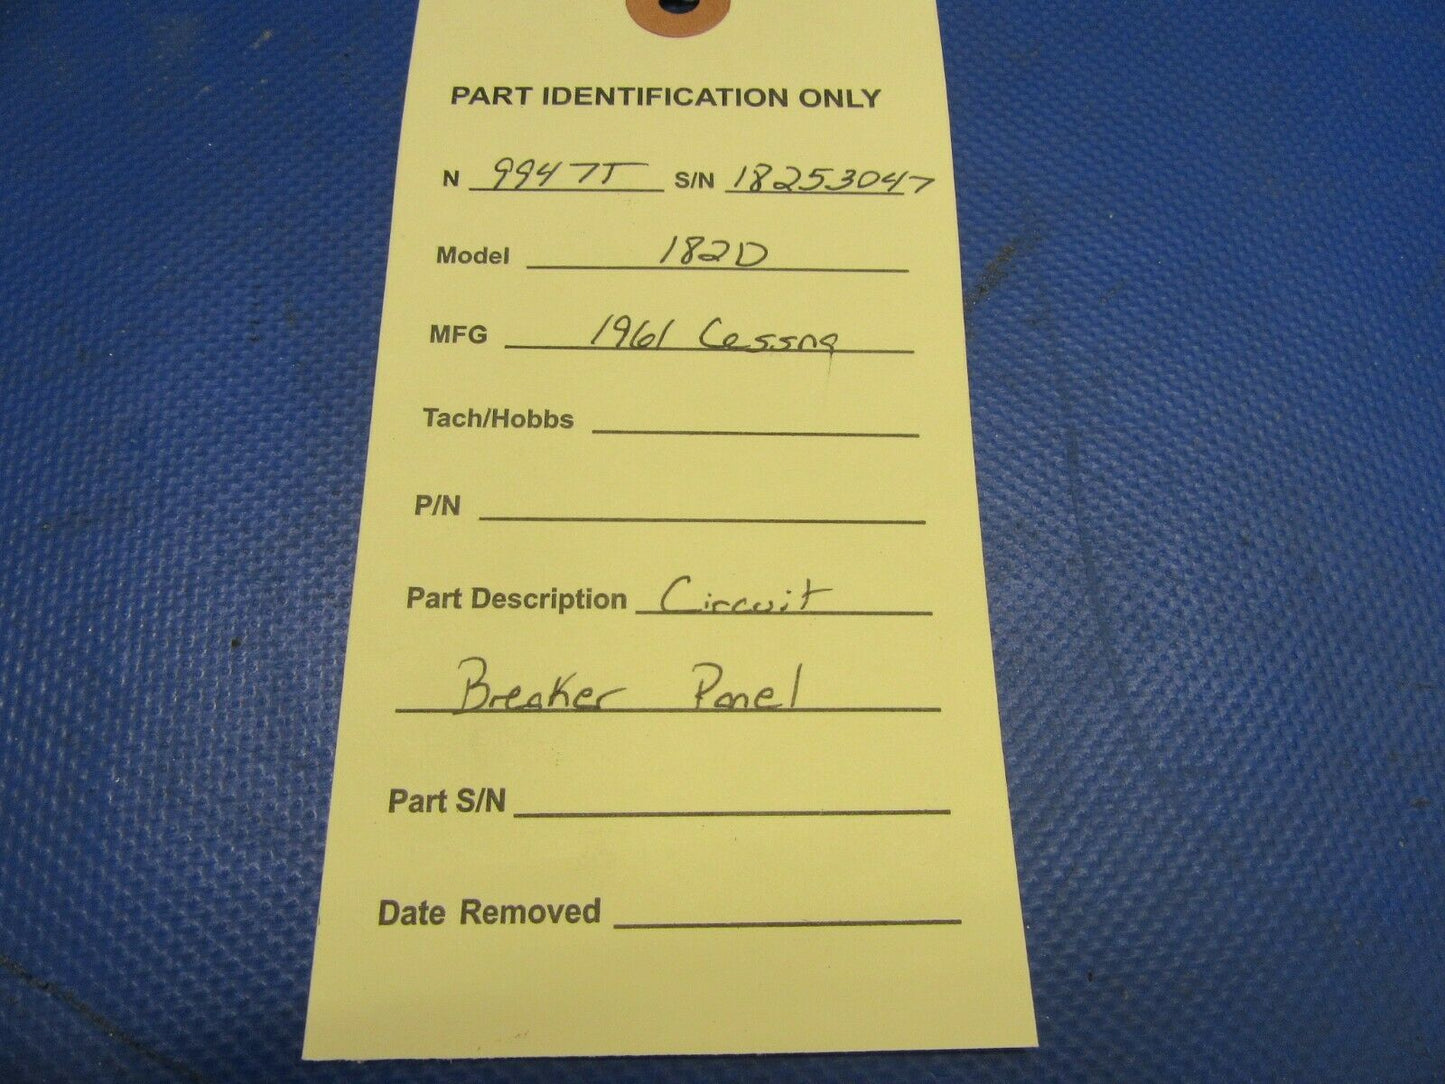 PART IDENTIFICATION ONLY
N 9947T S/N 18253047
Model 182D
MFG 1961 Cessna
Tach/Hobbs
P/N
Part Description Circuit
Breaker Panel
Part S/N
Date Removed